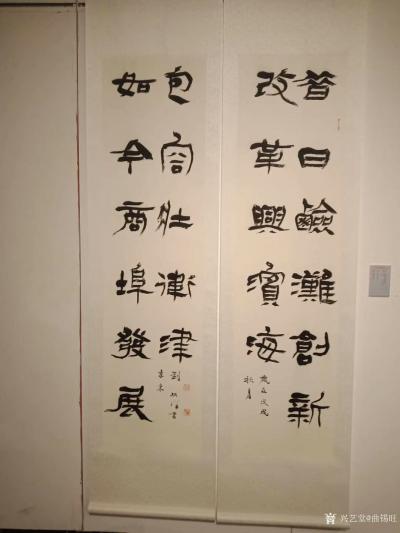 昔日鹼灘創新
改革興濱海
歲在戊戌
秋月
如今商埠發展
包容壯衛津
兴艺堂@曲锡旺